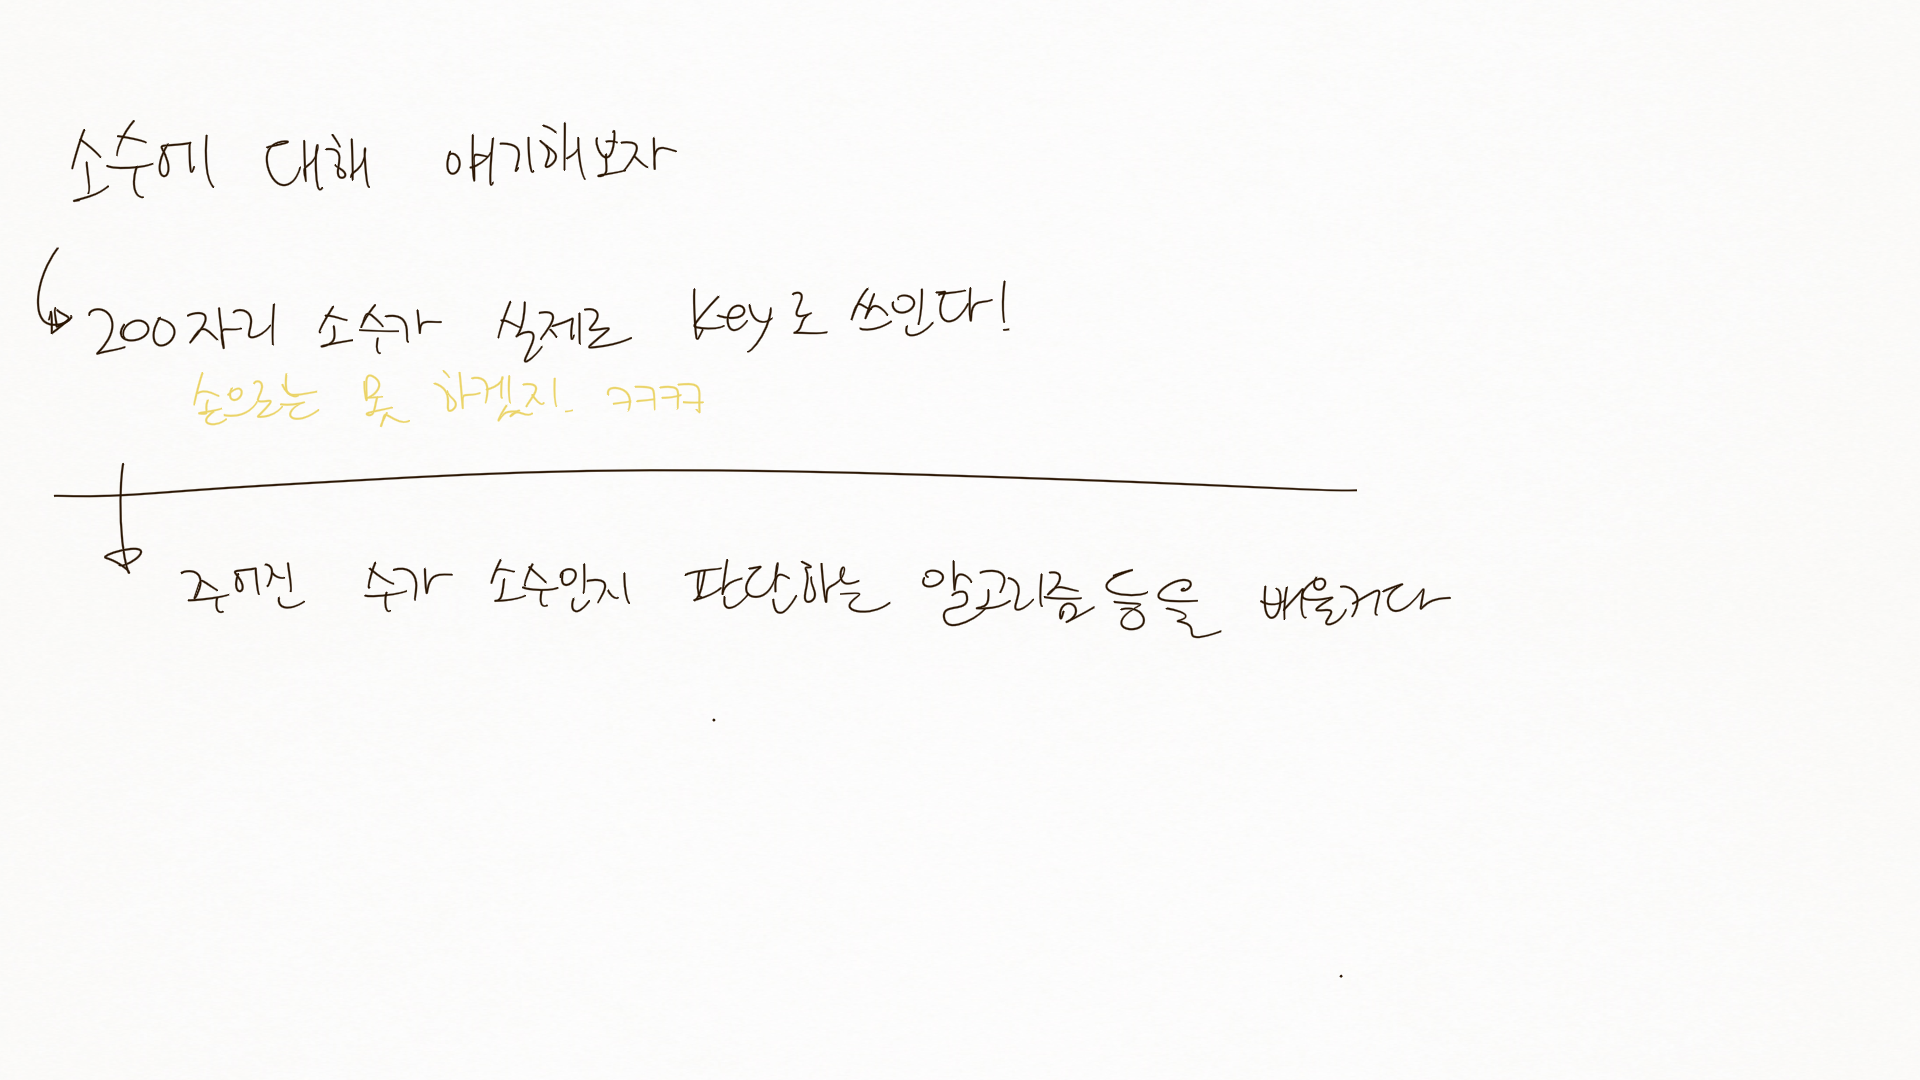 소수에 대해 얘기해보자
200자리 소수가 실제로 key로 쓰인다!
손으로는 못 하겠지. ㅋㅋㅋㅋ
주어진 수가 소수인지 판단하는 알고리즘 등을 배울거다